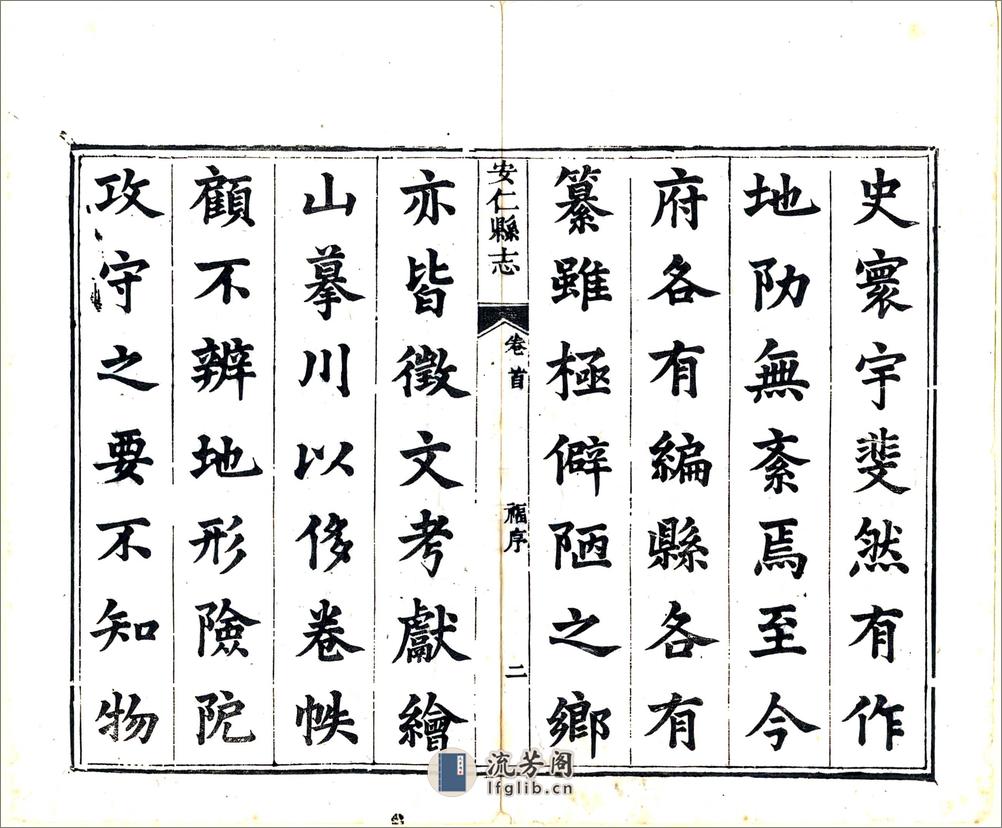 史寰宇斐然有作
地防無紊焉至今
府各有編縣各有
纂雖極僻陋之鄉
安仁縣志
卷首
福序
二
亦皆徵文考獻繪
山摹川以侈卷帙
顧不辨地形險阨
攻守之要不知物
流芳阁
lfglib.cn